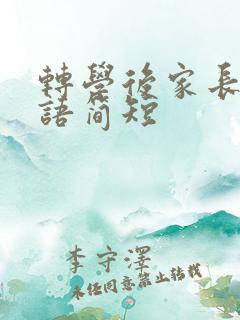 轉學後家長
語簡短
李守澤
未经同意禁止转载